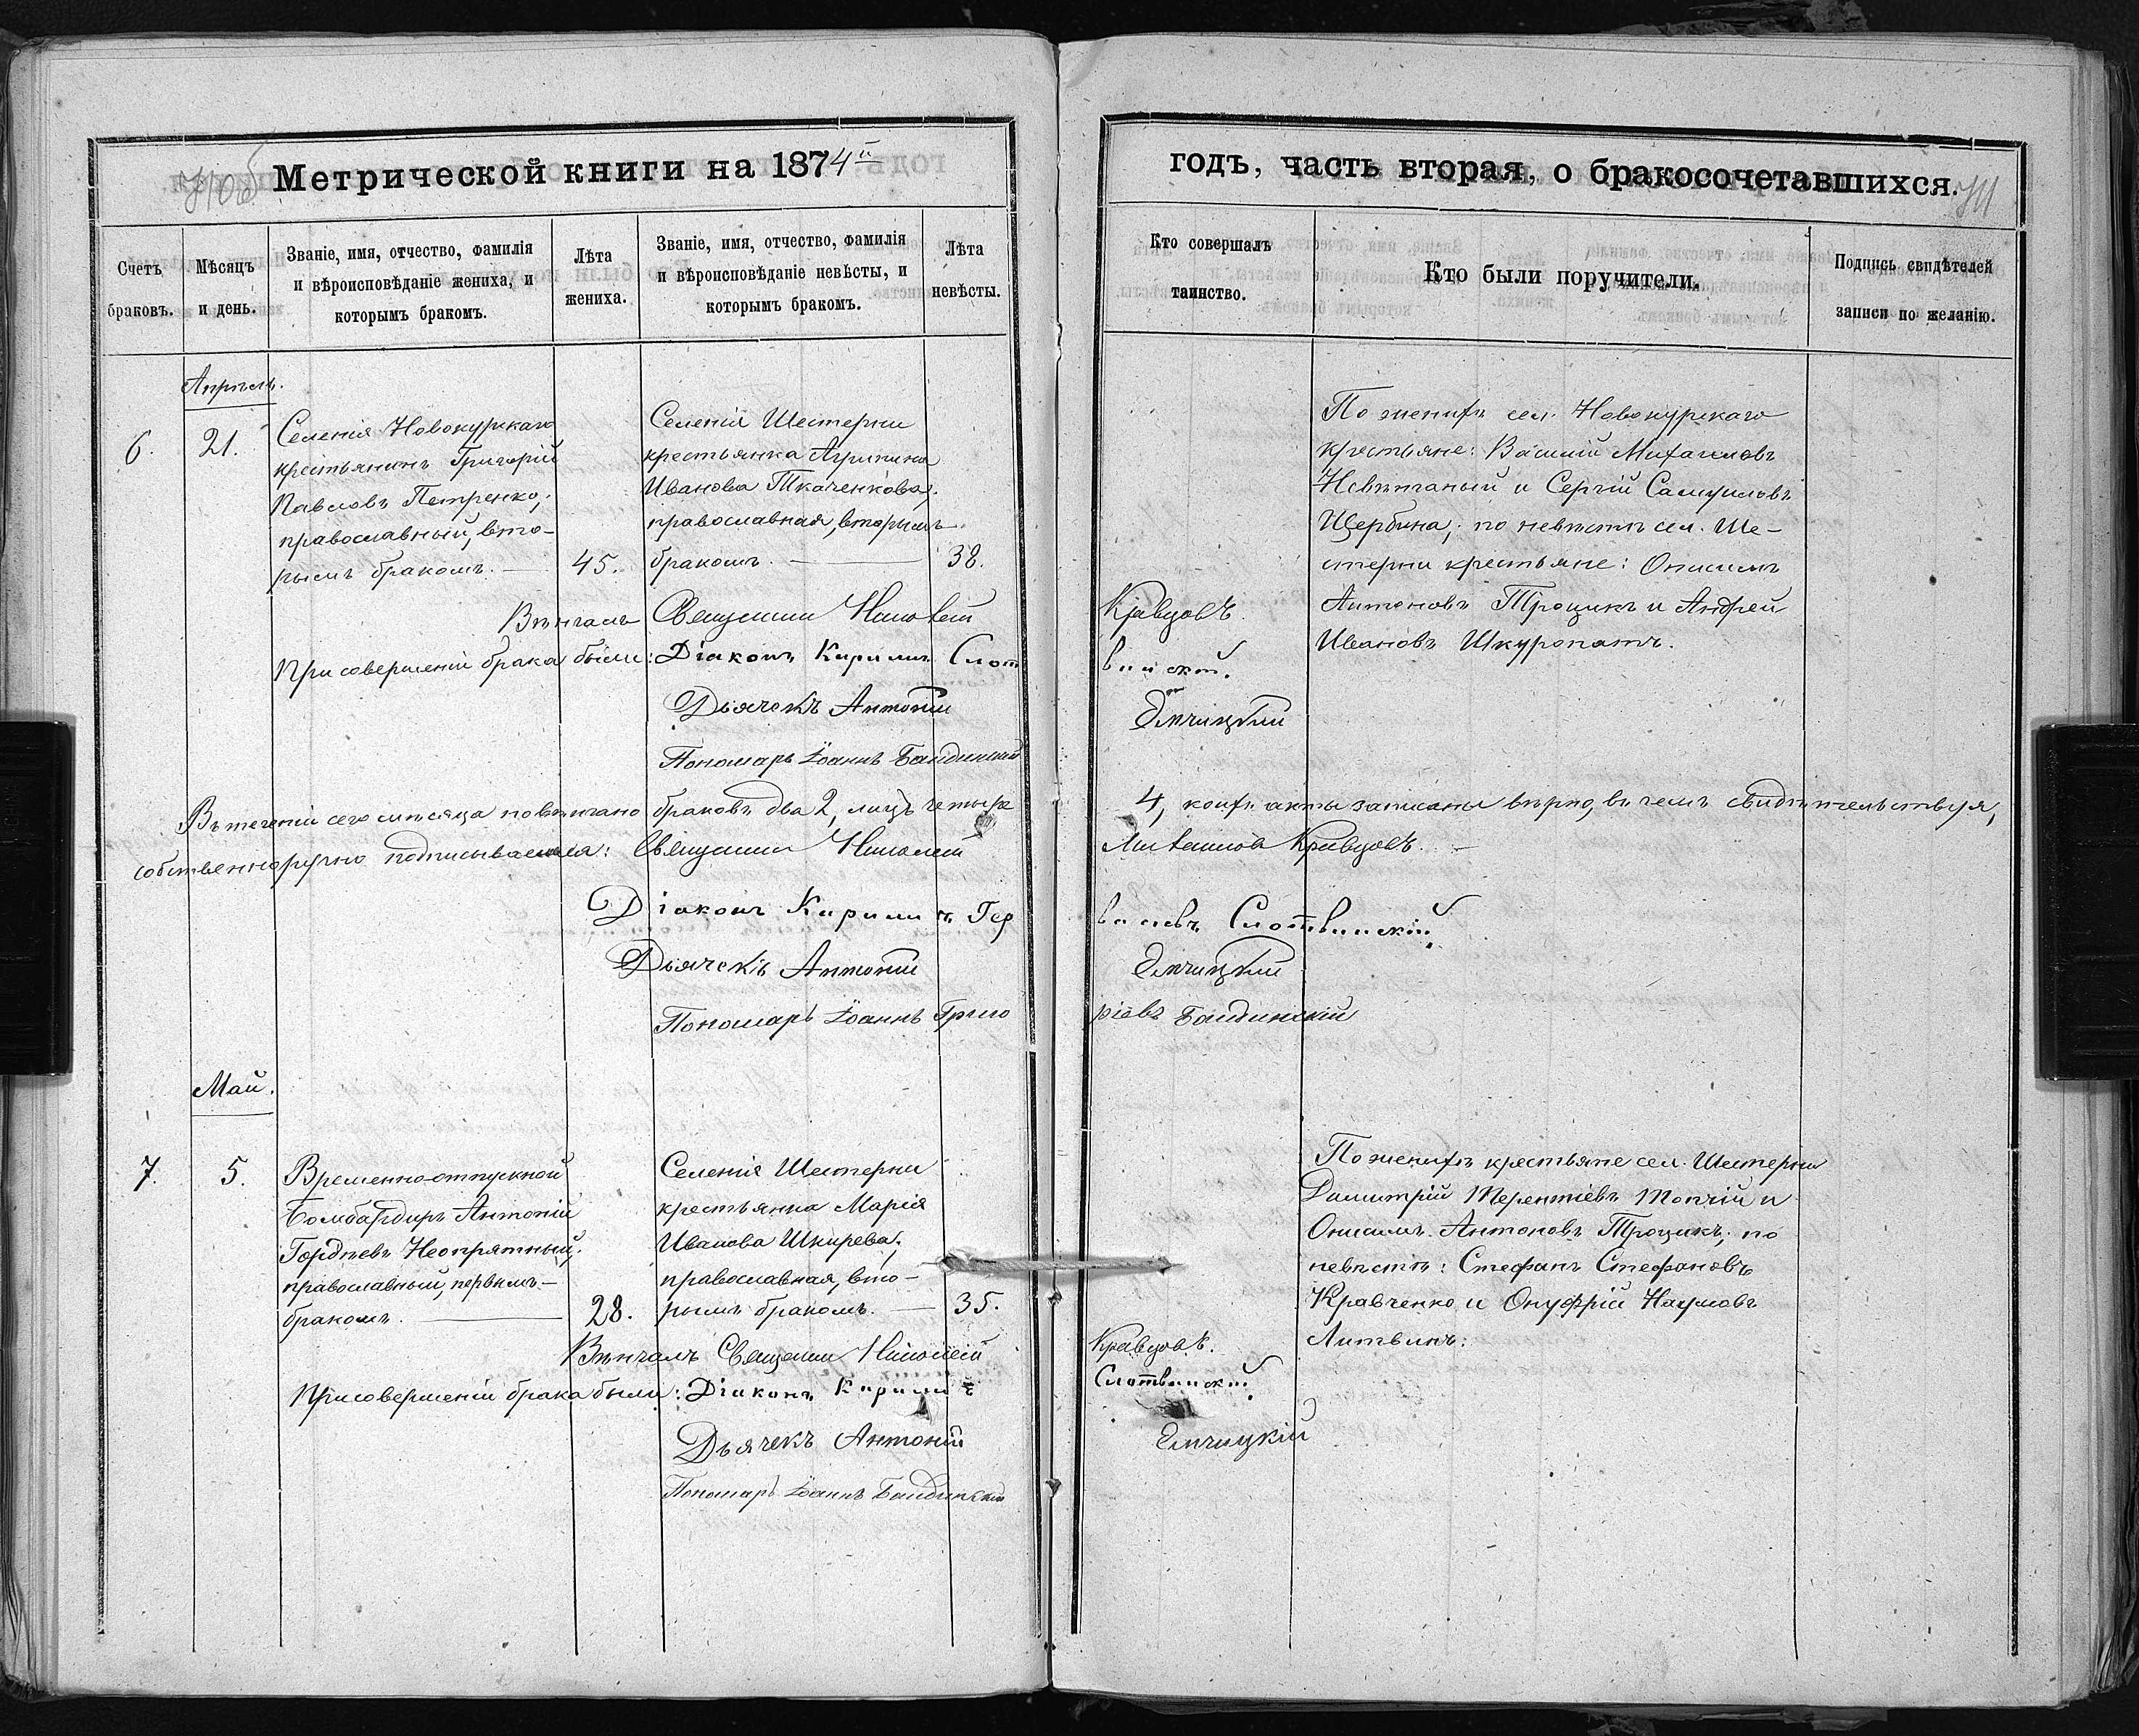 Метрической книги на 1874й
Счетъ браковъ.
Мѣсяцъ и день.
Званіе, имя, отчество, фамилія и вѣроисповѣданіе жениха, и которымъ бракомъ.
Лѣта жениха.
Званіе, имя, отчество, фамилія и вѣроисповѣданіе невѣсты, и которымъ бракомъ.
Лѣта невѣсты.
Апрѣль.
6.
21.
Селенія Новокурскаго
крестьянинъ Григорій
Павловъ Петренко,
православный, вто-
рымъ бракомъ.
45.
Селенія Шестерни
крестьянка Агрипина
Иванова Ткаченкова,
православная, вторымъ
бракомъ.
38.
Вѣнчалъ Священникъ Николай
При совершеніи брака были: Діаконъ Кириллъ Слот
Дьячекъ Антоній
Пономарь Іоаннъ Бандинскій
Въ теченіи сего мѣсяца повѣнчано браковъ два 2, лицъ четыре
собственноручно подписываемся: Священникъ Николай
Діаконъ Кириллъ Гер
Дьячекъ Антоній
Пономарь Іоаннъ Григо
Май.
7.
5.
Временно-отпускной
бомбардиръ Антоній
Гордѣевъ Неопрятный,
православный, первымъ
бракомъ.
28.
Селенія Шестерни
крестьянка Марія
Иванова Шкирева,
православная, вто-
рымъ бракомъ.
35.
Вѣнчалъ Священникъ Николай
При совершеніи брака были: Діаконъ Кириллъ
Дьячекъ Антоній
Пономарь Іоаннъ Бандинскій
годъ, часть вторая, о бракосочетавшихся.
Кто совершалъ таинство.
Кто были поручители.
Подпись свидѣтелей записи по желанію.
По женихѣ сел. Новокурскаго
крестьяне: Василій Михаиловъ
Невѣнчаный и Сергій Самуиловъ
Щербина; по невѣстѣ сел. Ше-
стерни крестьяне: Онисимъ
Антоновъ Троцикъ и Андрей
Ивановъ Шкуропатъ.
Кравцовъ.
винскій.
Емчицкій
4, коихъ акты записаны вѣрно, въ чемъ свидѣтельствуя,
Михаиловъ Кравцовъ.
васіевъ Слотвинскій
Емчицкій
ріевъ Бандинскій
По женихѣ крестьяне сел. Шестерни
Димитрій Терентіевъ Топчій и
Онисимъ Антоновъ Троцикъ; по
невѣстѣ: Стефанъ Стефановъ
Кравченко и Онуфрій Наумовъ
Литвинъ.
Кравцовъ.
Слотвинскій.
Емчицкій